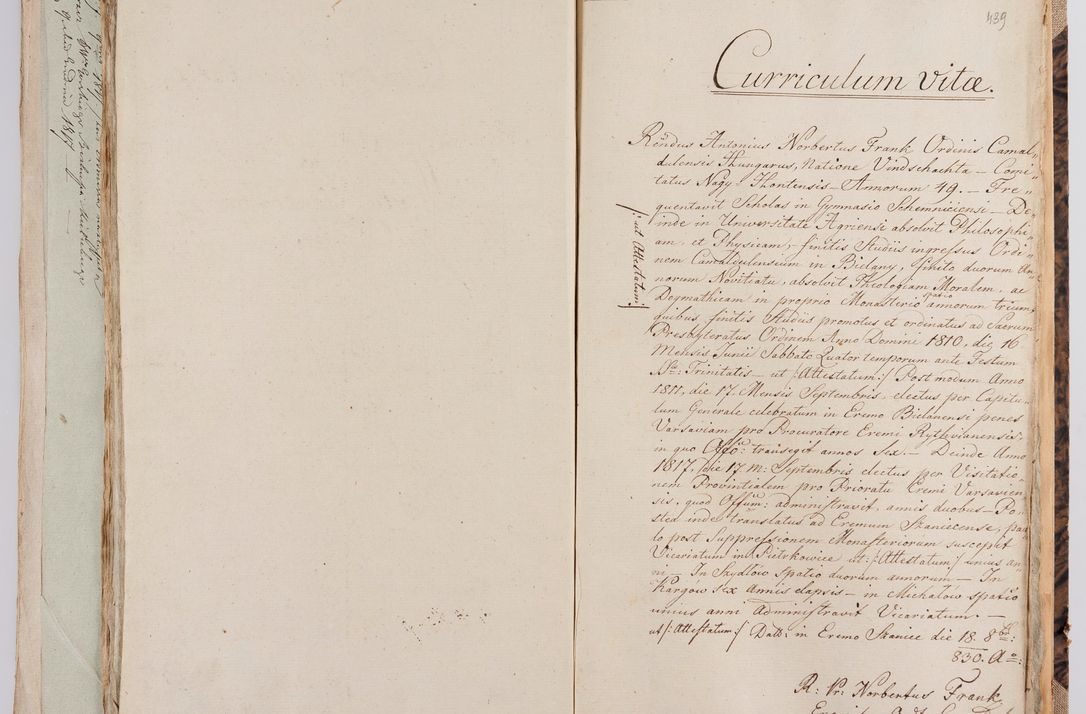 439
Curriculum vitæ.
Rendus Antonius Norbertus Frank Ordinis Camal„
dulensis Hungarus, Natione Vindschachta – Comi„
tatus Nagy-Hontensis – Annorum 49. – Fre„
quentavit Scholas in Gymnasio Schemniciensi – De„
inde in Universitate Agriensi absolvit Philosophi„
am, et Physicam, finitis Studiis ingressus Ordi„
nem Camaldulensium in Bielany, finito duorum An„
norum Novitiatu, absolvit Theologiam Moralem, ac
Dogmathicam in proprio Monasterio spatio annorum trium,
quibus finitis Studiis promotus et ordinatus ad Sacrum
Presbyteratus Ordinem Anno Domini 1810, die 16
Mensis Junii Sabbato Quator temporum ante Festum
SSæ: Trinitatis – ut /:Attestatum:/ Post modum Anno
1811, die 17. Mensis Septembris, electus per Capitu„
lum Generale celebratum in Eremo Bielanensi penes
Varsaviam pro Procuratore Eremi Rythvianensis,
in quo Offo: transegit annos Sex. – Deinde Anno
1817. die 17 M: Septembris electus per Visitatio„
nem Provintialem pro Prioratu Eremi Varsavien„
sis, quod Offum: administravit, annis duobus – Po„
stea inde translatus ad Eremum Szaniecense, pau„
lo post Suppressionem Monasteriorum suscepit
Vicariatum in Pietrkowice ut: /:Attestatum:/ unius an„
ni – In Szydłow spatio duorum annorum – In
Kargow Sex Annis elapsis – in Michałow spatio
unius anni Administravit Vicariatum. –
ut /:Attestatum:/ Datt: in Eremo Szaniec die 18. 8bris:
830. Ao:
R: Vr: Norbertus Frank
/:ut Attestatum:/